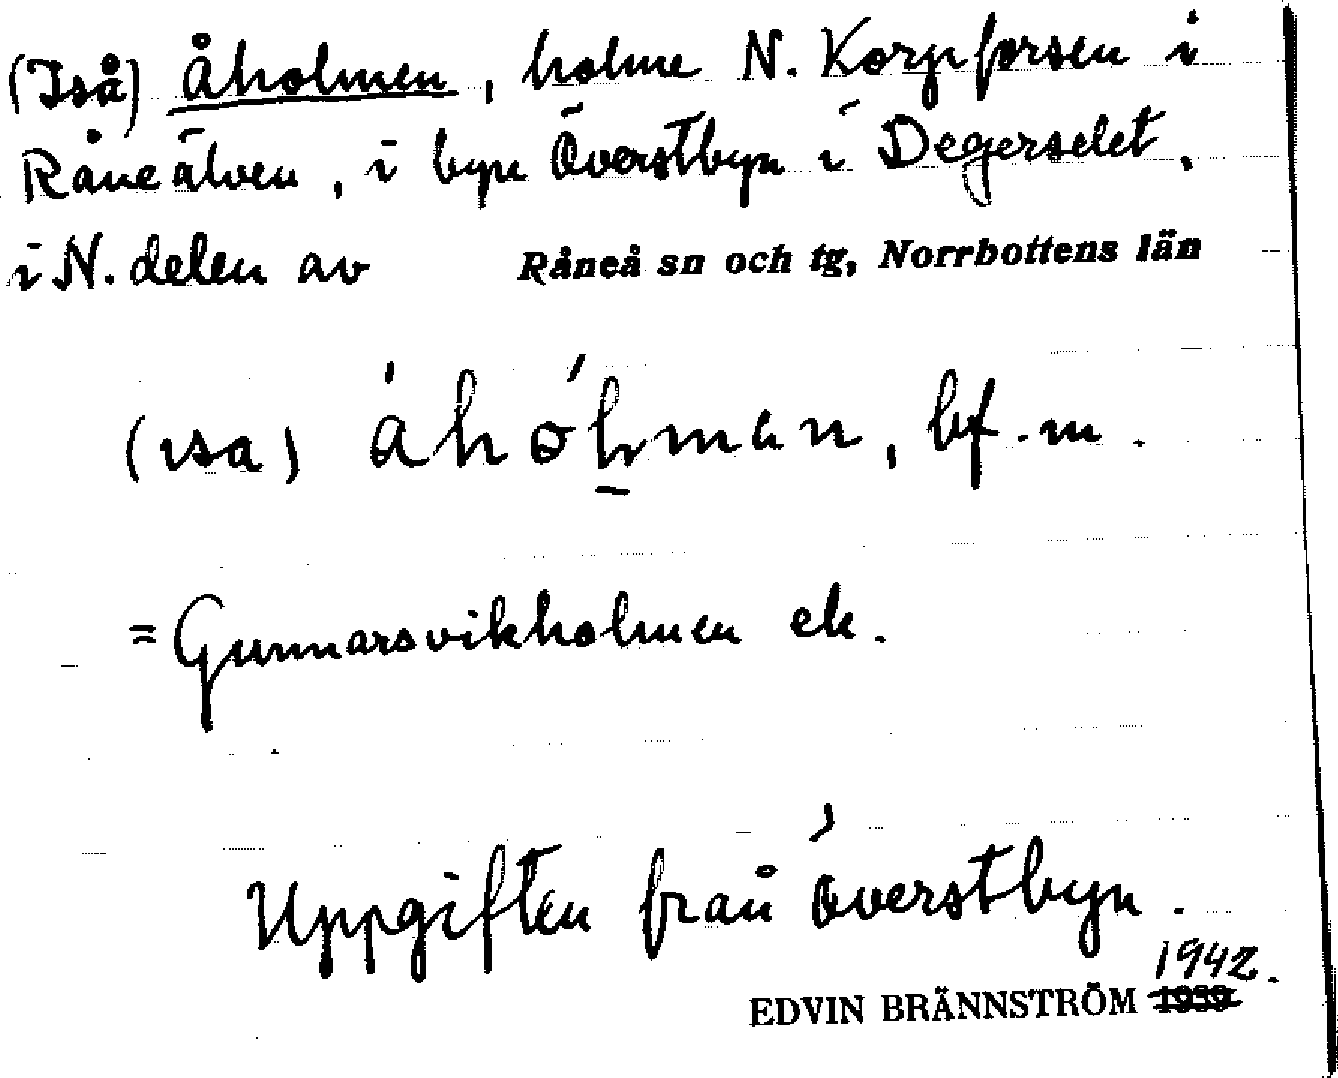 (Iså) Åholmen, holme N. Korpforsen i
Råneälven, i byn Överstbyn i Degerselet,
i N. delen av Råneå sn och tg, Norrbottens län
(ısa) áhóḻman, bf. m.
= Gunnarsvikholmen ek.
Uppgiften från Överstbyn.
1942.
EDVIN BRÄNNSTRÖM 1939